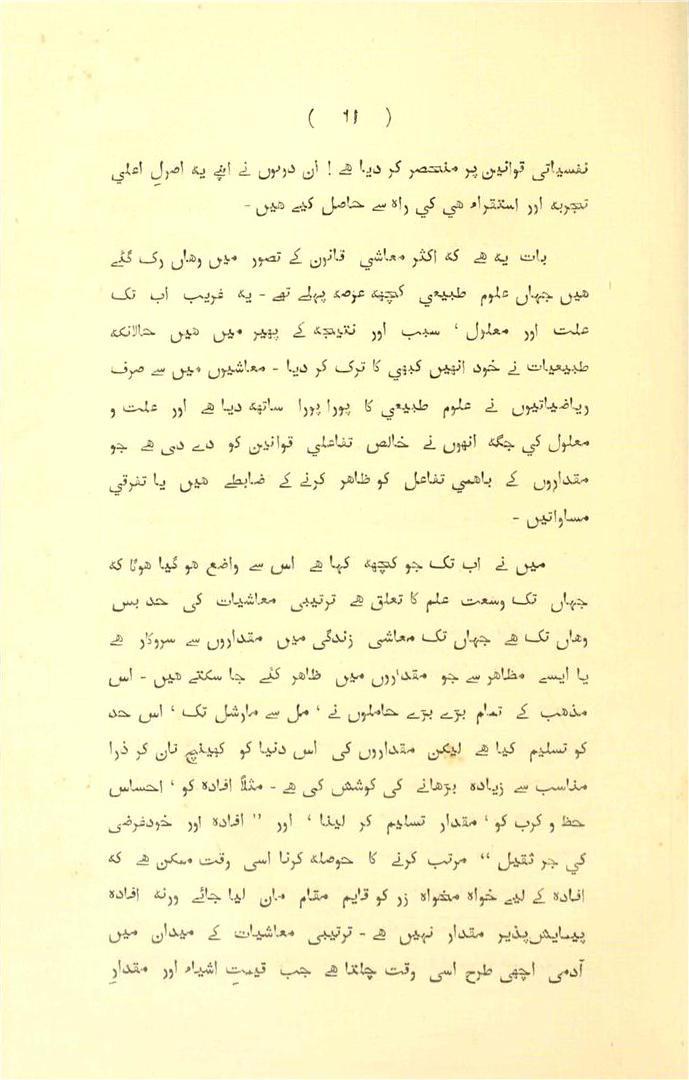 ( ۶۱ )
نفسیاتی قوانین پر منحصر کر دیا هے ! ان دونوں نے اپنے یه اصولِ اعلي
تجربه اور استقراء هي کي راه سے حاصل کیے هیں -
بات یه هے که اکثر معاشي قانون کے تصور میں وهاں رک گئے
هیں جهاں علوم طبیعي کچهه عرصه پہلے تھے - یه غریب اب تک
علت اور معلول ' سبب اور نتیجه کے پهیر میں هیں حالانکه
طبیعیات نے خود انهیں کبهي کا ترک کر دیا - معاشیوں میں سے صرف
ریاضیاتیوں نے علوم طبیعي کا پورا پورا ساتهه دیا هے اور علت و
معلول کي جگه انهوں نے خالص تفاعلي قوانین کو دے دی هے جو
مقداروں کے باهمي تفاعل کو ظاهر کرنے کے ضابطے هیں یا تفرقي
مساواتیں -
میں نے اب تک جو کچهه کہا هے اس سے واضع هو گیا هوگا که
جہاں تک وسعت علم کا تعلق هے ترتیبی معاشیات کی حد بس
وهاں تک هے جهاں تک معاشی زندگی میں مقداروں سے سروکار هے
یا ایسے مظاهر سے جو مقداروں میں ظاهر کئے جا سکتے هیں - اس
مذهب کے تمام بڑے بڑے حاملوں نے ' مل سے مارشل تک ' اس حد
کو تسلیم کیا هے لیکن مقداروں کی اس دنیا کو کهینچ تان کر ذرا
مناسب سے زیاده بڑهانے کی کوشش کی هے - مثلاً افاده کو ' احساس
حظ و کرب کو ' مقدار تسلیم کر لینا ' اور " افاده اور خودغرضی
کي جر ثقیل " مرتب کرنے کا حوصله کرنا اسی وقت ممکن هے که
افاده کے لیے خواه مخواه زر کو قایم مقام مان لیا جائے ورنه افاده
پیمایش‌پذیر مقدار نہیں هے - ترتیبی معاشیات کے میدان میں
آدمی اچهی طرح اسی وقت چلتا هے جب قیمتِ اشیاء اور مقدارِ